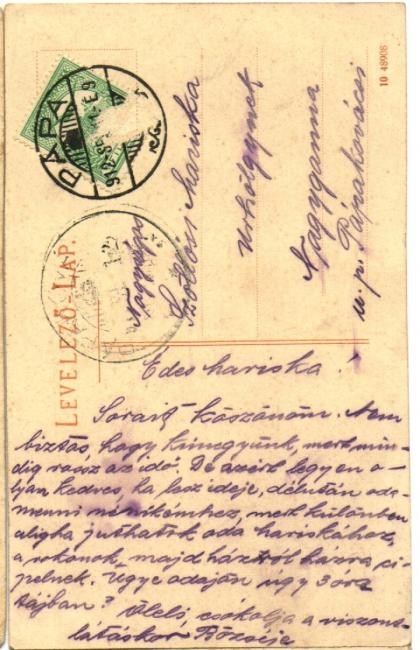 LEVELEZŐ-LAP.
PÁPA
Nagysága
Szőllősi Mariska
urhölgynek
Nagyganna
u. p. Pápakovácsi
10 48908
Édes Mariska!
Sorait köszönöm. Nem
biztos, hogy kimegyünk, mert min-
dig rossz az idő. De azért legyen o-
lyan kedves, ha lesz ideje, délután oda
menni nénikémhez, mert különben
aligha juthatok oda Mariskához,
a rokonok majd házról házra ci-
pelnek. Ugye odajön ugy 3 óra
tájban? Öleli, csókolja a viszont-
látáskor Rózsija